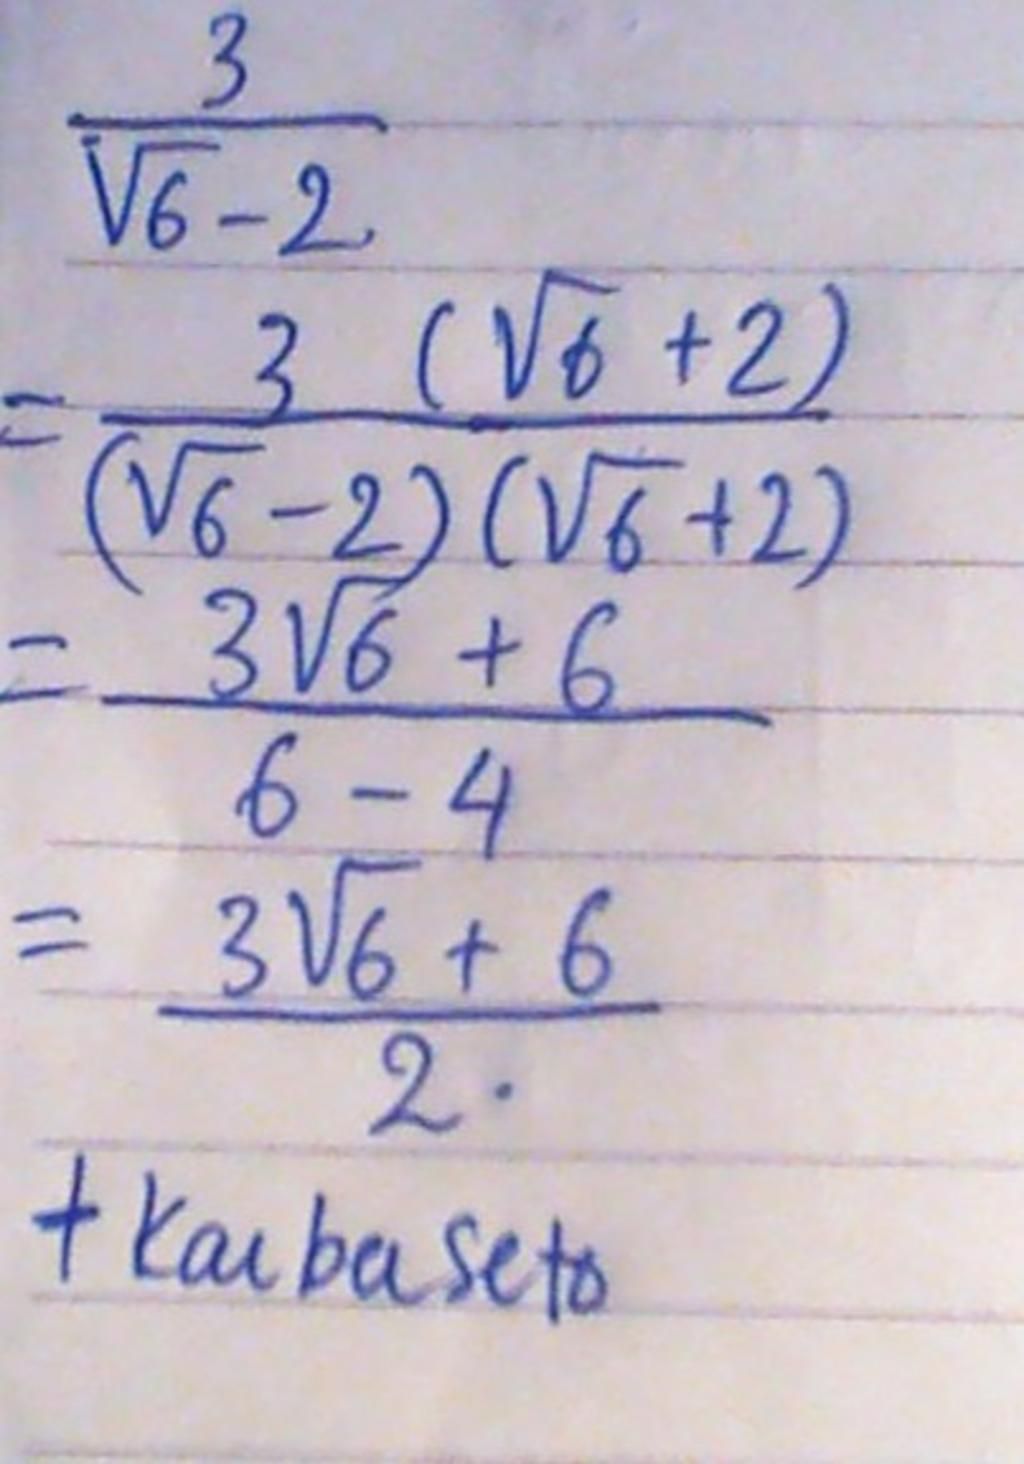 3
√6 - 2
= 3 (√6 + 2)
(√6 - 2) (√6 + 2)
= 3√6 + 6
6 - 4
= 3√6 + 6
2.
+ Kaibaseto